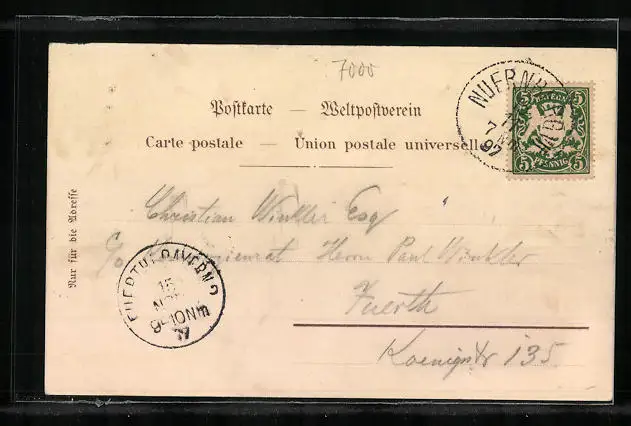 7000
Postkarte — Weltpostverein
Carte postale — Union postale universelle
NUERNB
7 N
97
5 BAYERN 5
5 PFENNIG 5
Nur für die Adresse
Christian Winkler Esq
c/o Herrn Paul Winkler
Fuerth
Koenigstr 135.
FUERTH BAYERN 2
15
NOV